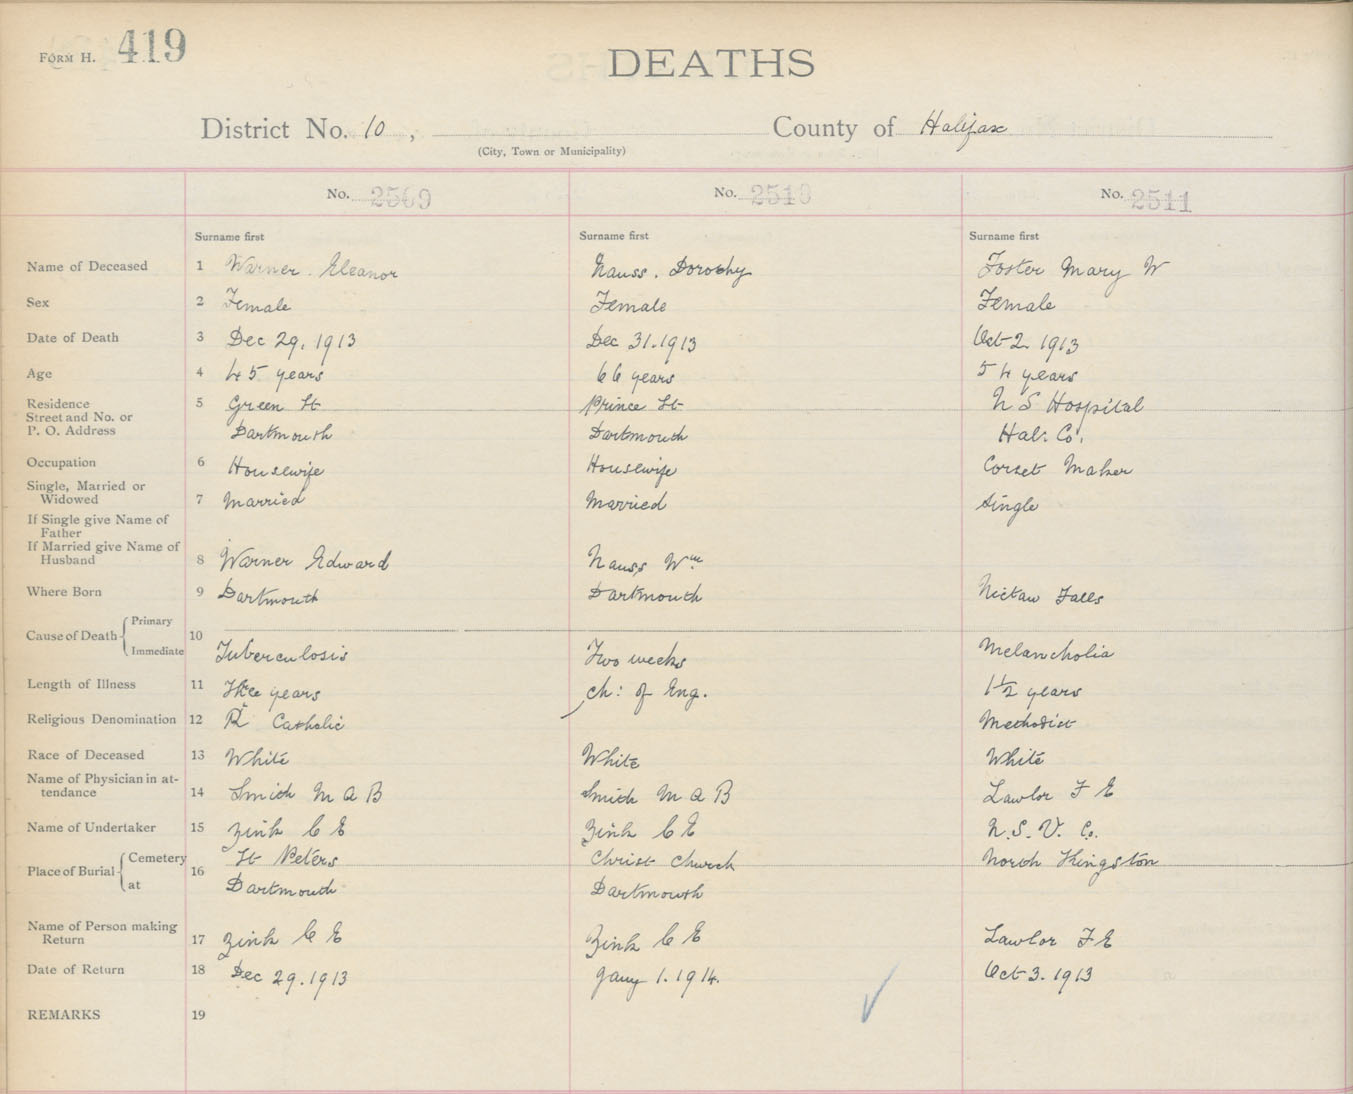 FORM H. 419
DEATHS
District No. 10, County of Halifax
(City, Town or Municipality)
No. 2509 No. 2510 No. 2511
Surname first Surname first Surname first
Name of Deceased 1 Warner Eleanor Nauss. Dorothy Foster Mary W
Sex 2 Female Female Female
Date of Death 3 Dec 29, 1913 Dec 31. 1913 Oct 2 1913
Age 4 45 years 66 years 54 years
Residence 5 Green St Prince St N S Hospital
Street and No. or
P. O. Address Dartmouth Dartmouth Hal. Co.
Occupation 6 Housewife Housewife Corset Maker
Single, Married or
Widowed 7 Married Married Single
If Single give Name of
Father
If Married give Name of
Husband 8 Warner Edward Nauss Wm
Where Born 9 Dartmouth Dartmouth Nictaw Falls
Cause of Death 10 Primary
Immediate Tuberculosis Two weeks Melancholia
Length of Illness 11 Three years Ch: of Eng. 1½ years
Religious Denomination 12 R Catholic Methodist
Race of Deceased 13 White White White
Name of Physician in at-
tendance 14 Smith M A B Smith M A B Lawlor F E
Name of Undertaker 15 Zink C E Zink C E N.S.V. Co.
Place of Burial 16 Cemetery St Peters Christ Church North Kingston
at Dartmouth Dartmouth
Name of Person making
Return 17 Zink C E Zink C E Lawlor F E
Date of Return 18 Dec 29. 1913 Jany 1. 1914. Oct 3. 1913
REMARKS 19